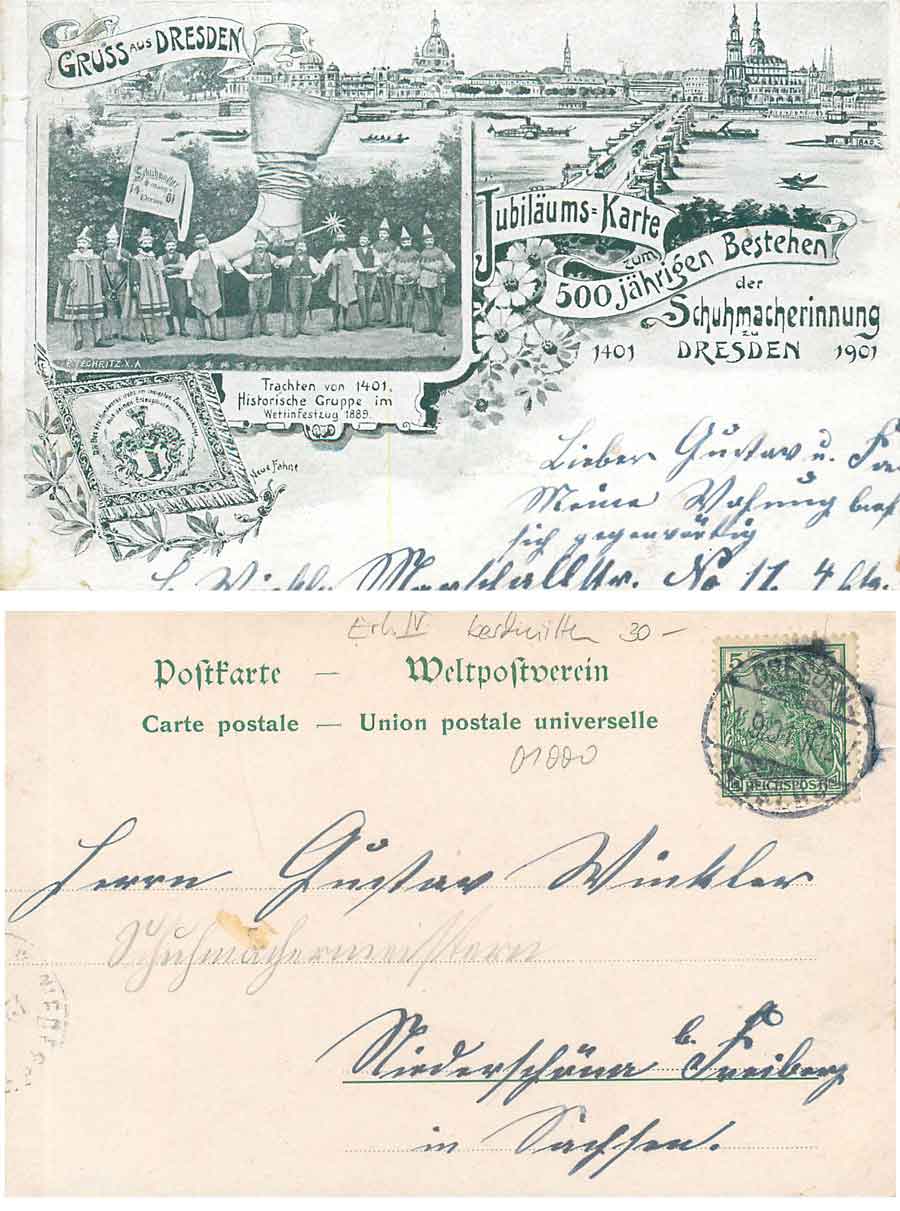 GRUSS AUS DRESDEN
Schuhmacher
Innung
14 01
Dresden
TECHRITZ X.A
Jubiläums=Karte
zum
500jährigen Bestehen
der
Schuhmacherinnung
zu
1401 DRESDEN 1901
Trachten von 1401.
Historische Gruppe im
Wettinfestzug 1889.
Neue Fahne
Lieber Gustav u.
Meine Wohung
sich gegenwärtig
Marschallstr. No 17. 4
30 –
Postkarte — Weltpostverein
Carte postale — Union postale universelle
01000
5 5
DRESDEN
REICHSPOST
Herrn Gustav Winkler
Schuhmachermeistern
Niederschöna b. Freiberg
in Sachsen.